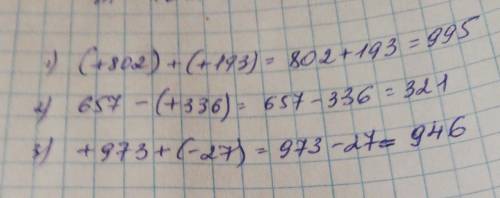 1) (+802) + (+193) = 802 + 193 = 995
2) 657 - (+336) = 657 - 336 = 321
3) +973 + (-27) = 973 - 27 = 946